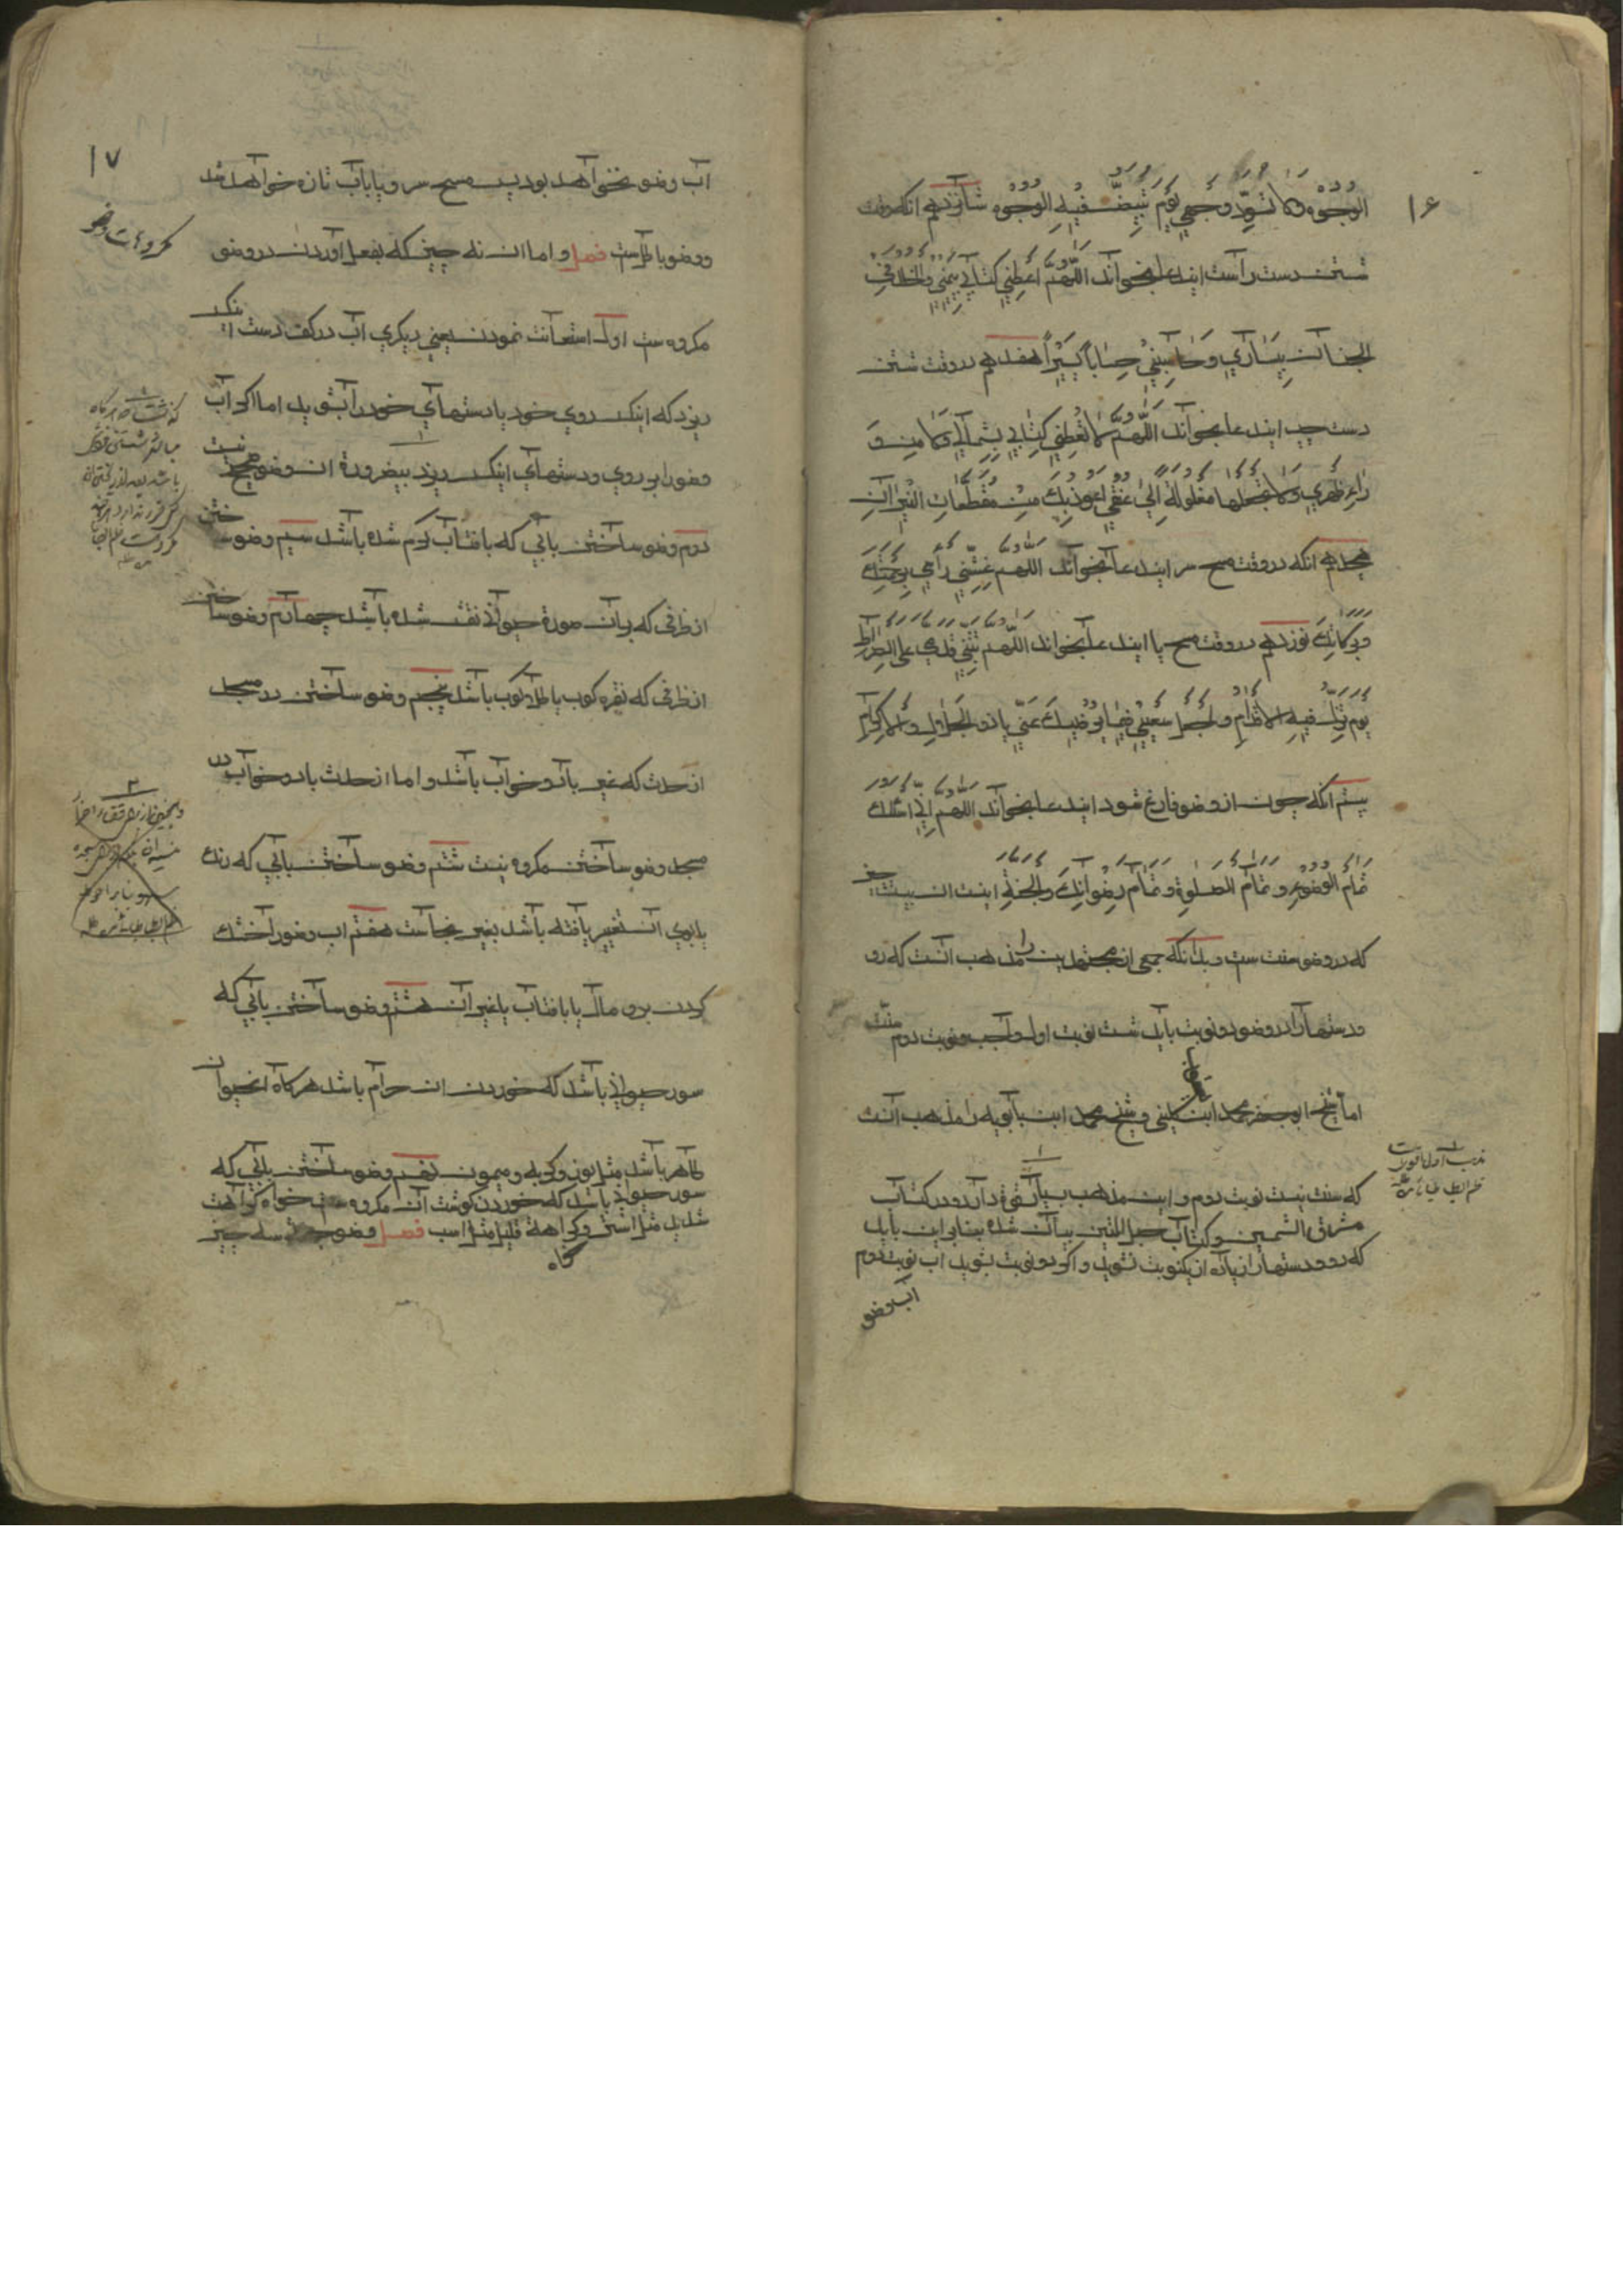 ۱۶
الوجوه ولا تسوّد وجهي يوم تبيضّ فيه الوجوه شانزدهم انکه وقت
شستن دست راست ايندعا بخواند اللّهمّ اعطني كتابي بيميني والخلد في
الجنان بيساري وحاسبني حساباً يسيراً هفدهم در وقت شستن
دست چپ ايندعا بخواند اللّهمّ لا تعطني كتابي بشمالي ولا من و
راء ظهري ولا تجعلها مغلولة الى عنقي واعوذ بك من مقطّعات النيران
هجدهم انکه در وقت مسح سر ايندعا بخواند اللهم غشّني رحمتك
وبركاتك نوزدهم در وقت مسح پا ايندعا بخواند اللّهم ثبّتني قدمي على الصراط
يوم تزلّ فيه الاقدام واجعل سعيي فيما يرضيك عنّي يا ذو الجلال والاكرام
بيستم انکه چون از وضو فارغ شود ايندعا بخواند اللهم اني اسئلك
تمام الوضوء و تمام الصلوة و تمام رضوانك والجنة اينست ان بيست
که در وضو سنت ست و بدانکه جمعي از مجتهدين را مذهب انست که رو
و دستها را در وضو دو نوبت بايد شست نوبت اول واجب و نوبت دوم سنّت
اما شيخ ابو جعفر محمد ابن يعقوب کليني و شيخ محمد ابن بابويه را مذهب انست
که سنت نيست نوبت دوم و اين مذهب بسيار قوة دارد و در کتاب
مشرق الشمسين و کتاب حبل المتين بيان شده بنابراين بايد
که رو و دستها را زياده از يکنوبت نشويد و اکر دو نوبت بشويد اب نوبت دوم
اب وضو
۱۷
اب وضو نخواهد بود پس مسح سر و پا باب تازه خواهد شد
و وضو باطلست فصل و اما ان نه چيز که بفعل اوردن در وضو
مکروهات وضو
مکروه ست اول استعانت نمودن يعني ديکري اب در کف دست اينکس
ريزد که اينکس روي خود يا دستهاي خود را بشويد اما اکر اب
وضو را بر روي و دستهاي اينکس ريزد بيضرورة ان وضو صحيح نيست
دوم وضو ساختن بابي که بافتاب کرم شده باشد سيم وضو ساختن
از ظرفي که بر ان صورة حيواني نقش شده باشد چهارم وضو ساختن
از ظرفي که نقره کوب يا طلا کوب باشد پنجم وضو ساختن در مسجد
از حدث که غير باد و خواب باشد و اما از حدث باد و خواب در
مسجد وضو ساختن مکروه نيست ششم وضو ساختن بابي که رنك
يا بوي ان تغيير يافته باشد بغير نجاست هفتم اب وضو را خشك
کردن برو مال يا بافتاب يا غير ان هشتم وضو ساختن بابي که
سور حيواني باشد که خوردن ان حرام باشد هرکاه انحيوان
طاهر باشد مثل يوز و کربه و ميمون نهم وضو ساختن بابي که
سور حيواني باشد که خوردن کوشت ان مکروه ست خواه کراهت
شديد مثل استر و کراهة قليل مثل اسب فصل وضو سه چيز
کاه